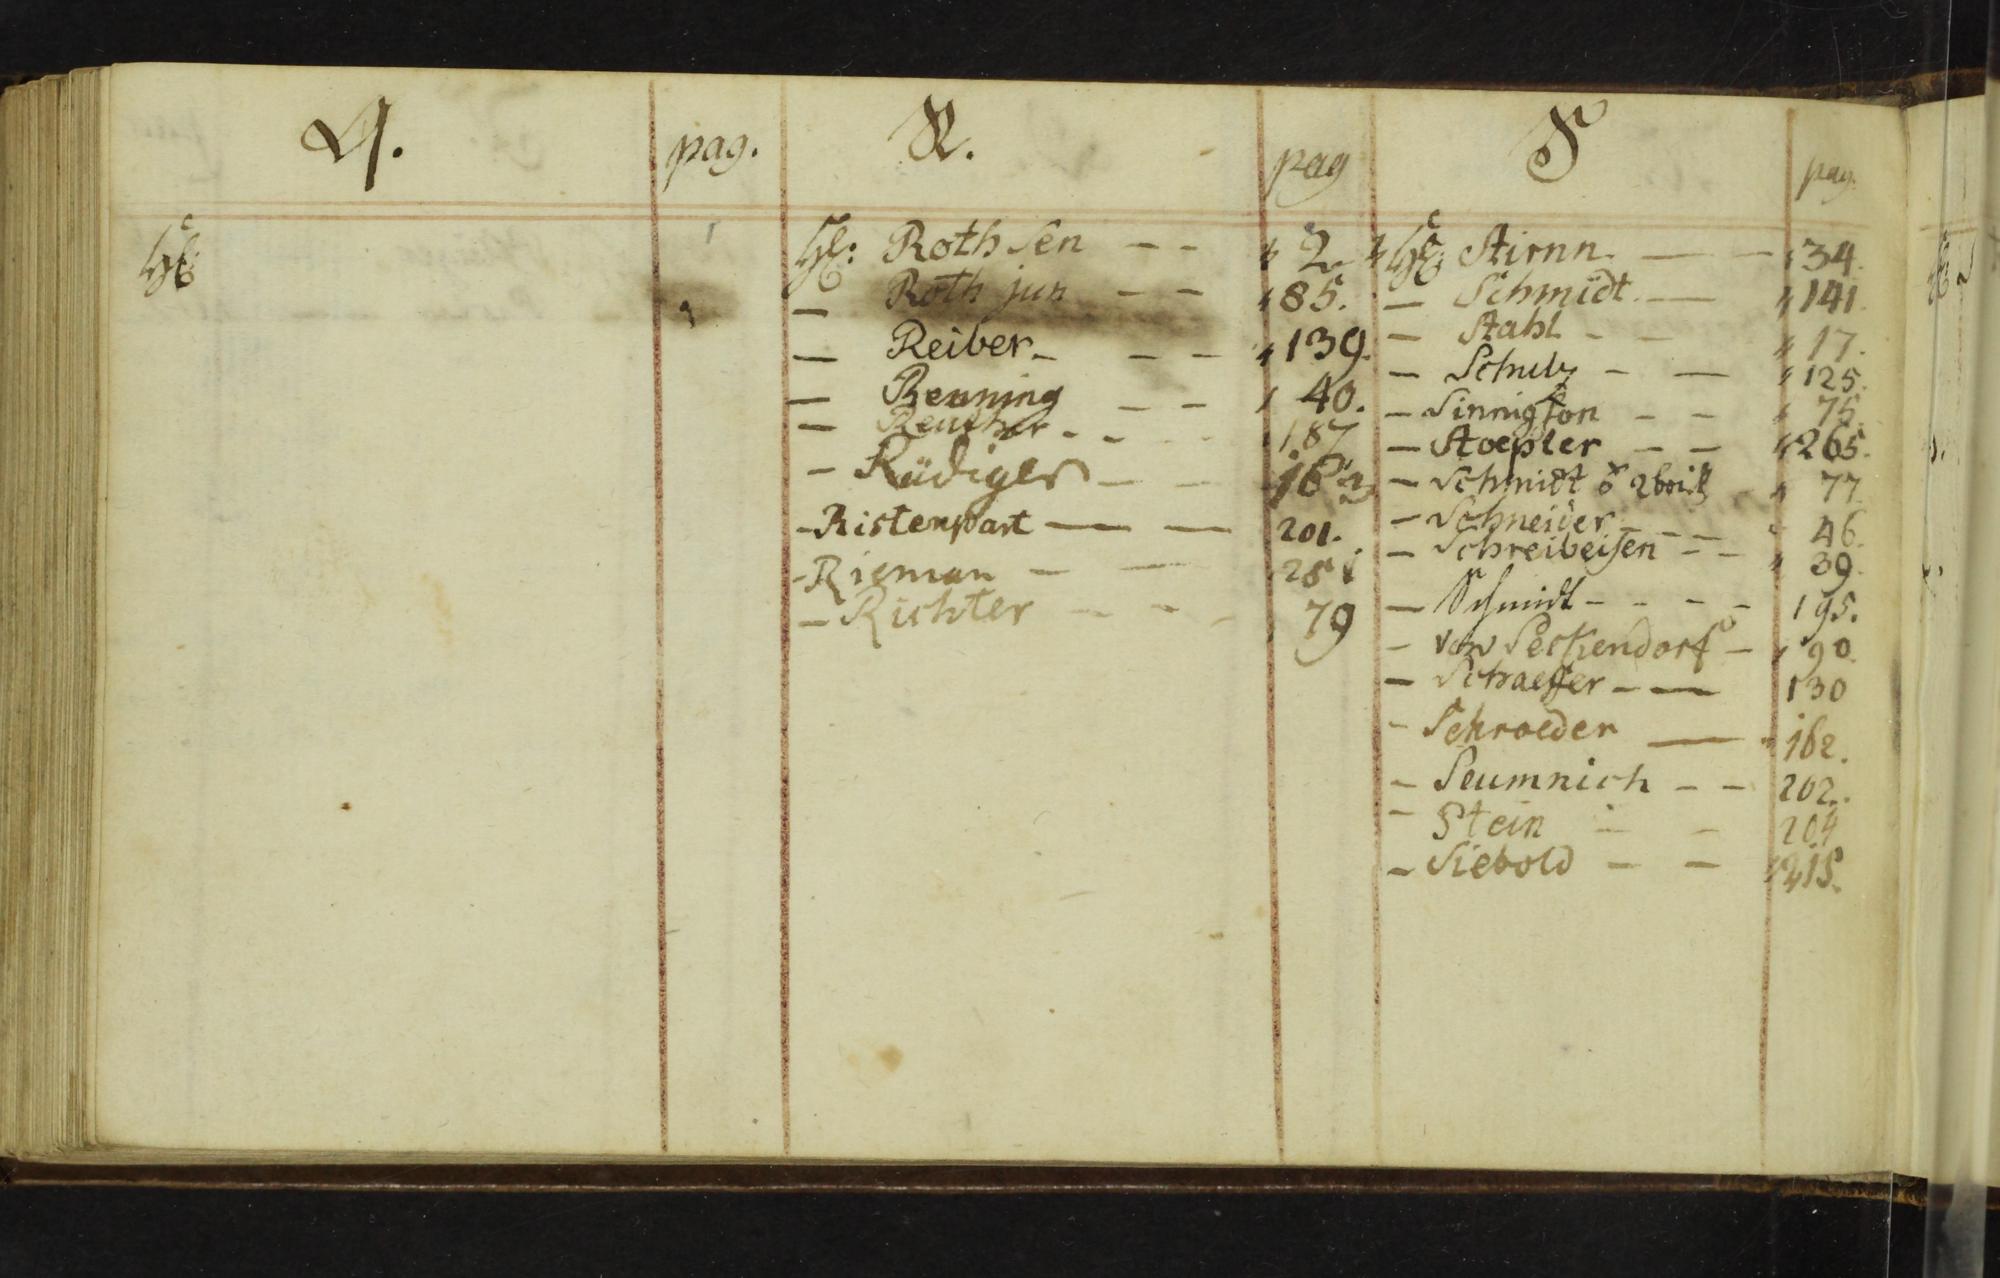 Q. pag.
H̄:
R. pag
H: Roth sen — — " 2.
— Roth jun — — " 85.
— Reiber — — " 139.
— Benning — — " 40.
— Reuther - - - " 187
— Rüdiger — —
— Ristenpart — — 201.
— Rieman — —
— Richter — — — 79
S pag.
H: Stirnn — — " 34.
— Schmidt — " 141.
— Stahl — — " 17.
— Schulz — — " 125.
— Sinnigson — — " 75.
— Stoepler — — " 265.
— Schmidt " 77
— Schneider — — " 46.
— Schreibeisen — — " 39.
— Schmidt - - - - 195.
— von Seckendorf — " 90.
— Schaeffer — — 130
— Schroeder — " 162.
— Seumnich — — 202.
— Stein — — 204
— Siebold — — " 215.